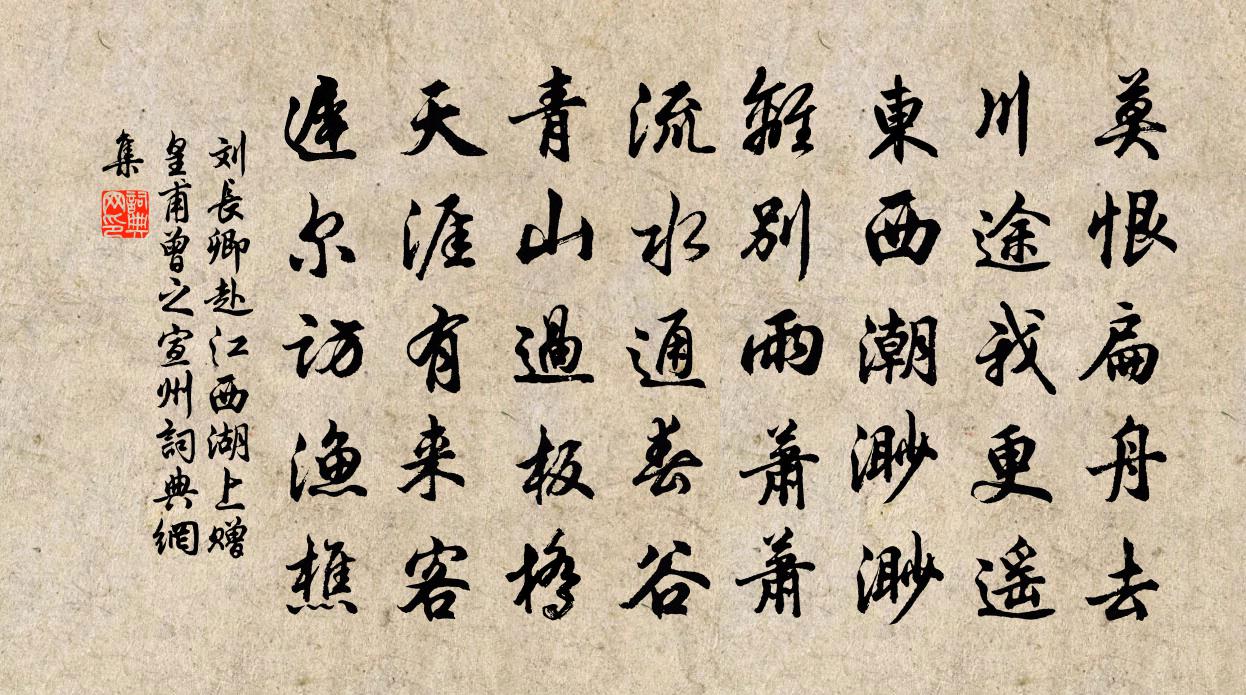 莫恨扁舟去
川途我更遥
東西潮渺渺
離別雨蕭蕭
流水通春谷
青山過板橋
天涯有来客
遲尔訪漁樵
刘長卿赴江西湖上赠
皇甫曾之宣州詞典網
集
詞典网印